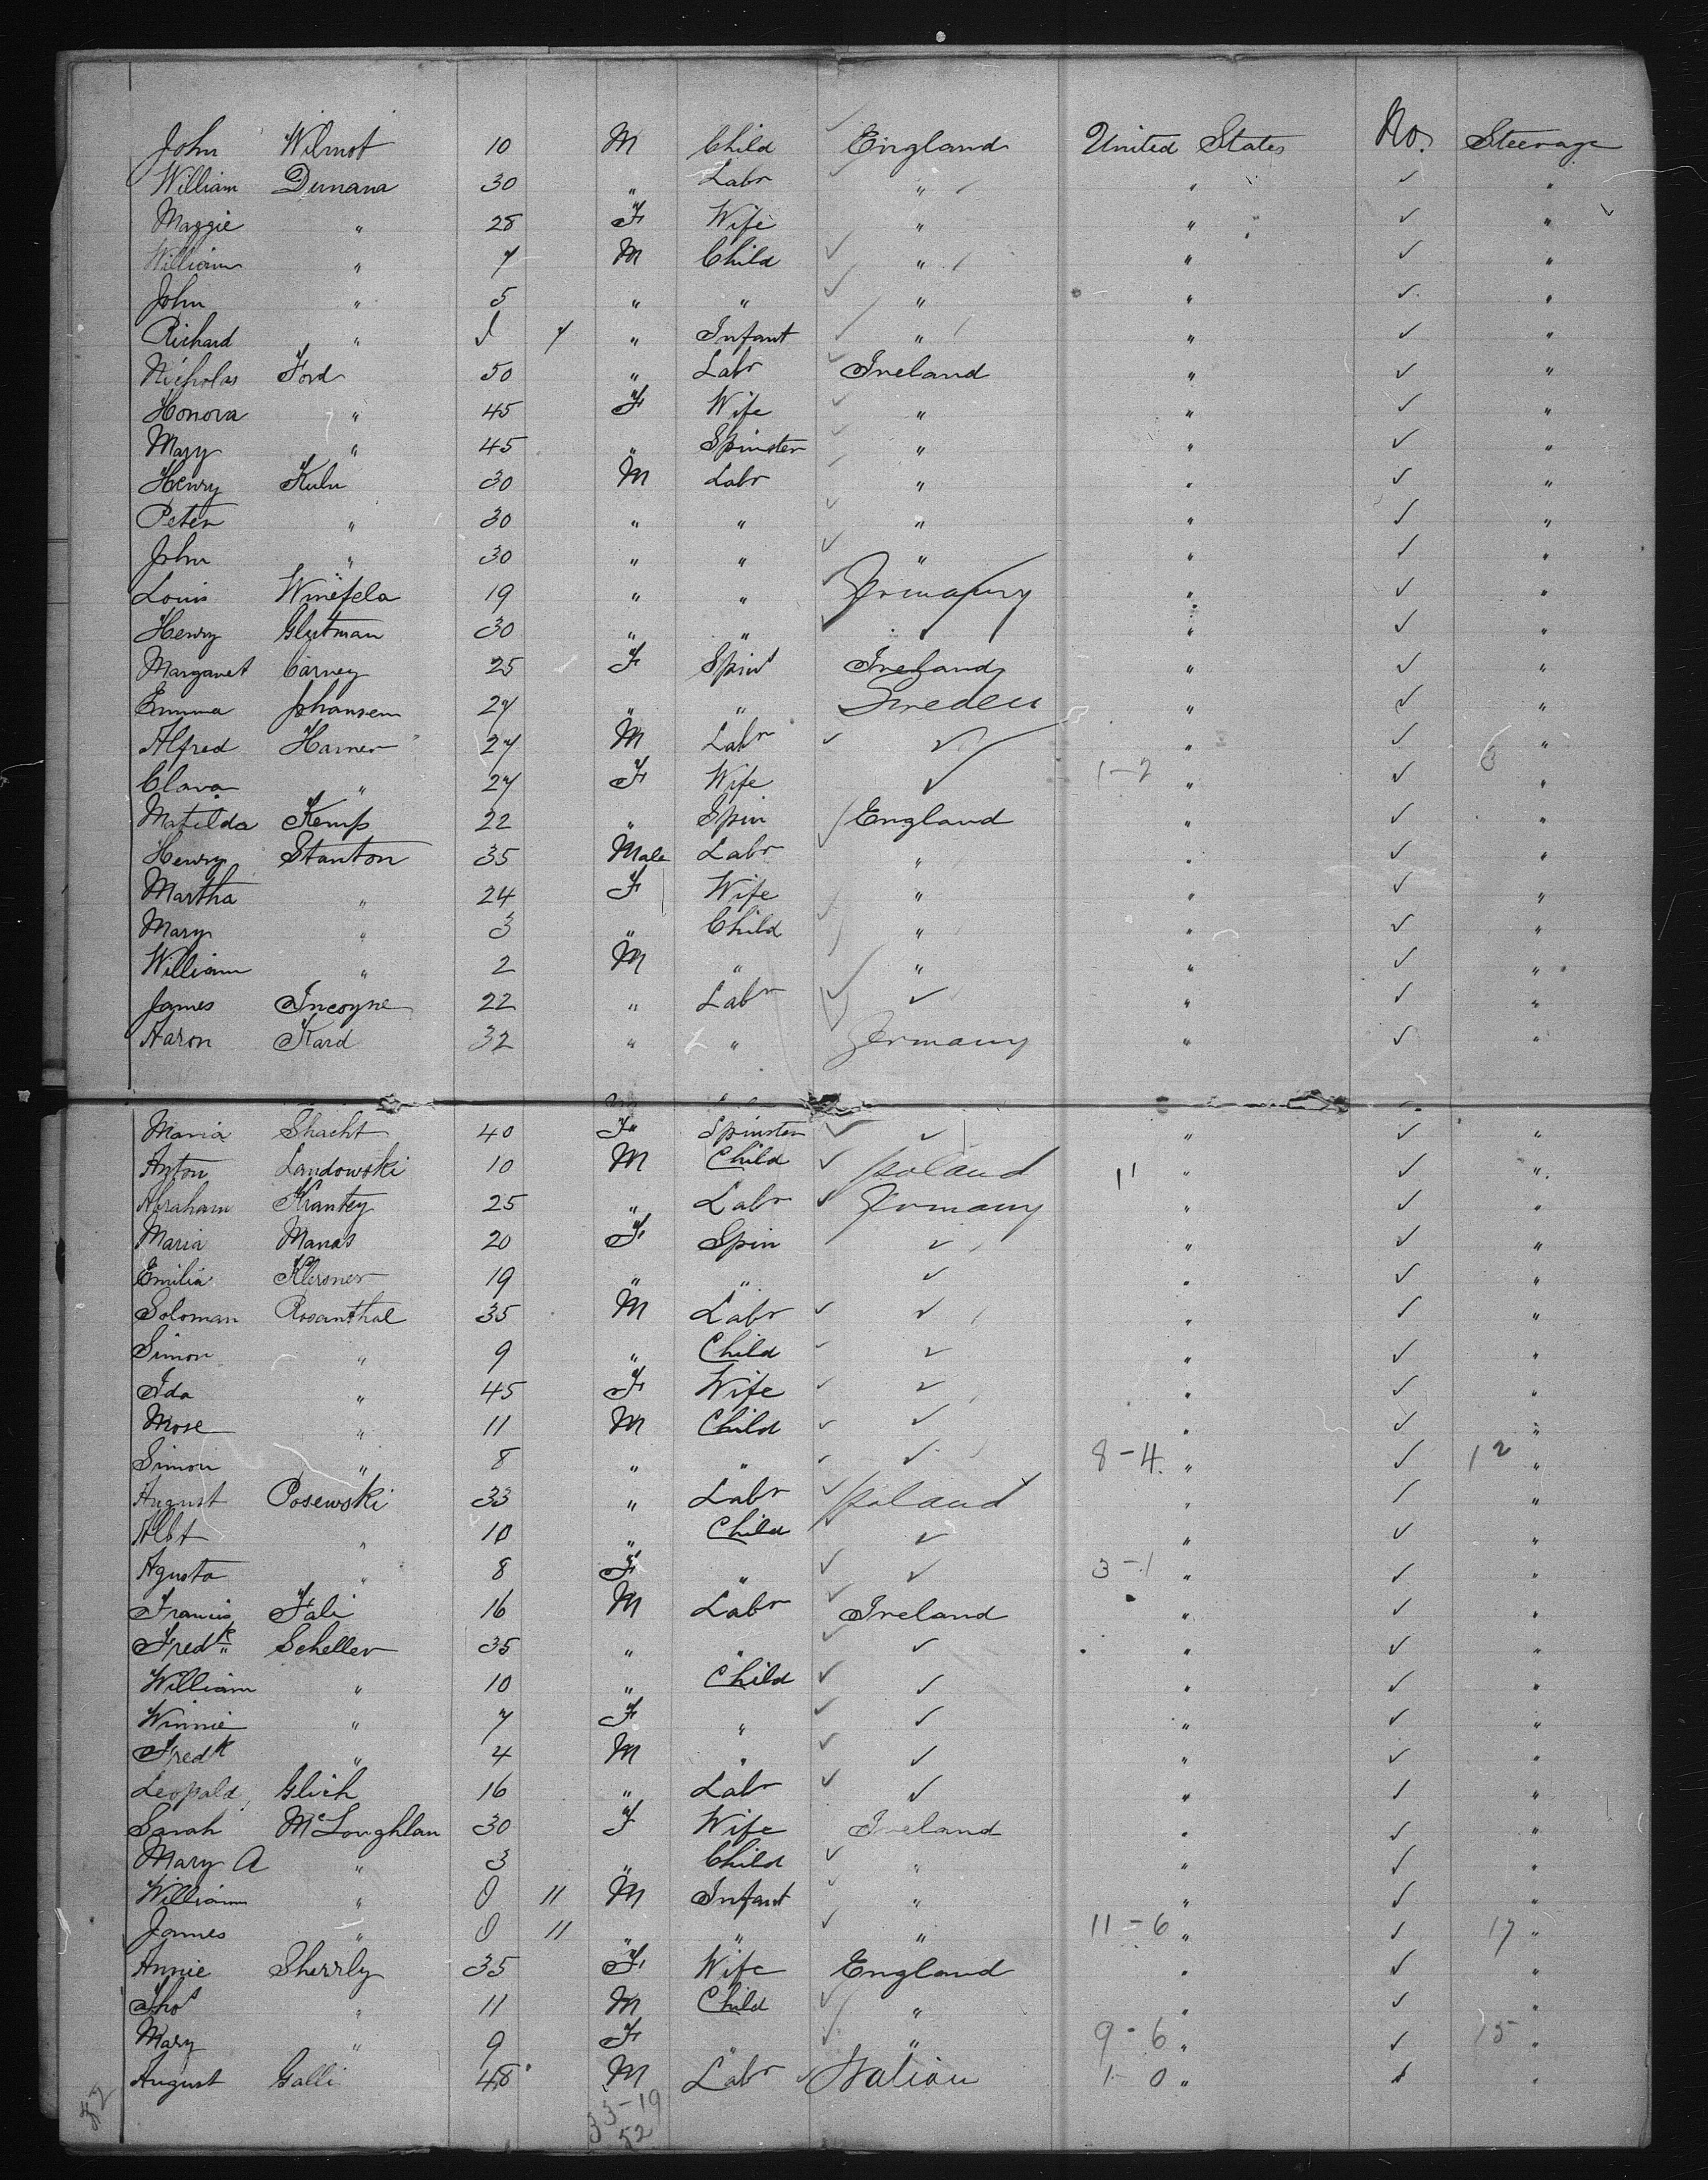 John Wilmot 10 M Child England United States No. Steerage
William Dumana 30 " Labr " " ✓ "
Maggie " 28 F Wife " " ✓ "
William " 7 M Child " " ✓ "
John " 5 " " " " ✓ "
Richard " 7 " Infant " " ✓ "
Nicholas Ford 50 " Labr Ireland " ✓ "
Honora " 45 F Wife " " ✓ "
Mary " 45 " Spinster " " ✓ "
Henry Kuln 30 M Labr " " ✓ "
Peter " 30 " " " " ✓ "
John " 30 " " " " ✓ "
Louis Winefela 19 " " Germany " ✓ "
Henry Glutman 30 " " ✓ " ✓ "
Margaret Carney 25 F Spins Ireland " ✓ "
Emma Johansen 27 " " Sweden " ✓ "
Alfred Harner 27 M Labr ✓ " ✓ "
Clara " 27 F Wife ✓ 1-2 " ✓ 3 "
Matilda Kemp 22 " Spin England " ✓ "
Henry Stanton 35 Male Labr " " ✓ "
Martha " 24 F Wife " " ✓ "
Mary " 3 " Child " " ✓ "
William " 2 M " " " ✓ "
James Incoyne 22 " Labr ✓ " ✓ "
Aaron Kard 32 " " Germany " ✓ "
Maria Shacht 40 F Spinster ✓ " ✓ "
Anton Landowski 10 M Child Poland 11 " ✓ "
Abraham Krantey 25 " Labr Germany " ✓ "
Maria Manas 20 F Spin ✓ " ✓ "
Emilia Klersner 19 " " ✓ " ✓ "
Soloman Rosanthal 35 M Labr ✓ " ✓ "
Simon " 9 " Child ✓ " ✓ "
Ida " 45 F Wife ✓ " ✓ "
Mose " 11 M Child ✓ " ✓ "
Simon " 8 " " ✓ 8-4. " ✓ 12 "
August Posewski 33 " Labr Poland " ✓ "
Albt " 10 " Child ✓ " ✓ "
Agusta " 8 F " ✓ 3-1 " ✓ "
Francis Fali 16 M Labr Ireland " ✓ "
Fredk Scheller 35 " " ✓ " ✓ "
William " 10 " Child ✓ " ✓ "
Winnie " 7 F " ✓ " ✓ "
Fredk " 4 M " ✓ " ✓ "
Leopald Glich 16 " Labr ✓ " ✓ "
Sarah McLoughlan 30 F Wife Ireland " ✓ "
Mary A " 3 " Child " " ✓ "
William " 0 11 M Infant " " ✓ "
James " 0 11 " " " 11-6 " ✓ 17 "
Annie Sherrly 35 F Wife England " ✓ "
Thos " 11 M Child " " ✓ "
Mary " 9 F " " 9-6 " ✓ 15 "
August Galli 48 M Labr Italian 1-0 " ✓ "
33-19
52
52